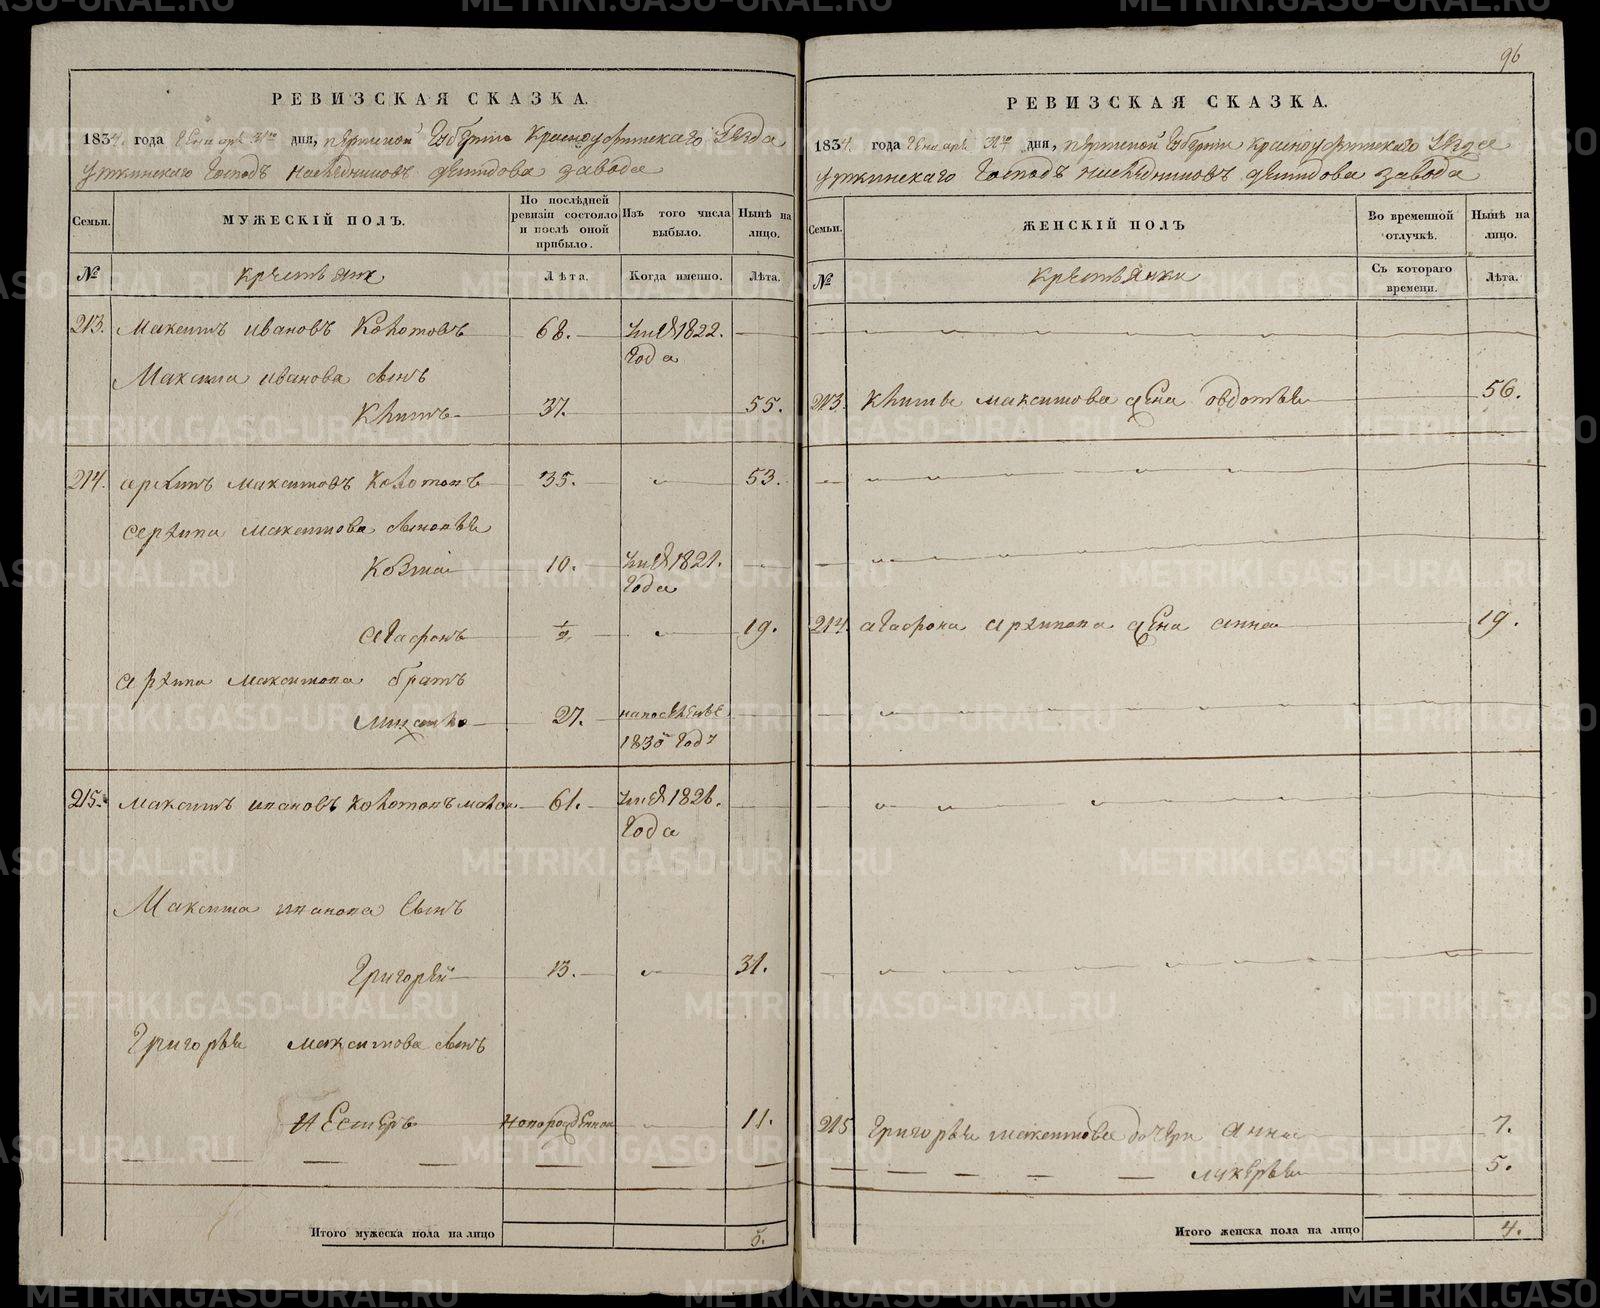 96
РЕВИЗСКАЯ СКАЗКА.
1834. года Генваря 31го дня, пермской Губернии Красноуфимскаго уезда
Уткинскаго Господъ наследниковъ демидова завода
Семьи.
МУЖЕСКІЙ ПОЛЪ.
По послѣдней ревизіи состояло и послѣ оной прибыло.
Изъ того числа выбыло.
Нынѣ на лицо.
№
крестьяне
Лѣта.
Когда именно.
Лѣта.
213. Максимъ ивановъ Кокотовъ 68. 1822. Года
Максима иванова сынъ
37. 55.
214. архипъ максимовъ Кокотовъ 35. 53.
архипа максимова сыновья
Козма 10. 1821. Года
агафонъ 1/2 19.
архипа максимова братъ
27. 1830 Году
215. максимъ ивановъ кокотовъ 61. 1826. Года
Максима иванова сынъ
Григорей 13. 31.
Григорья максимова сынъ
Нестеръ новорожденной 11.
Итого мужеска пола на лицо 5.
РЕВИЗСКАЯ СКАЗКА.
1834. года Генваря 31го дня, пермской Губернии красноуфимскаго уезда
уткинскаго Господъ наследниковъ демидова завода
Семьи.
ЖЕНСКІЙ ПОЛЪ
Во временной отлучкѣ.
Нынѣ на лицо.
№
крестьянки
Съ котораго времени.
Лѣта.
213. максимова жена овдотья 56.
214. агафона архипова жена анна 19.
215 григорья максимова дочери анна 7.
лукерья 5.
Итого женска пола на лицо 4.
METRIKI.GASO-URAL.RU